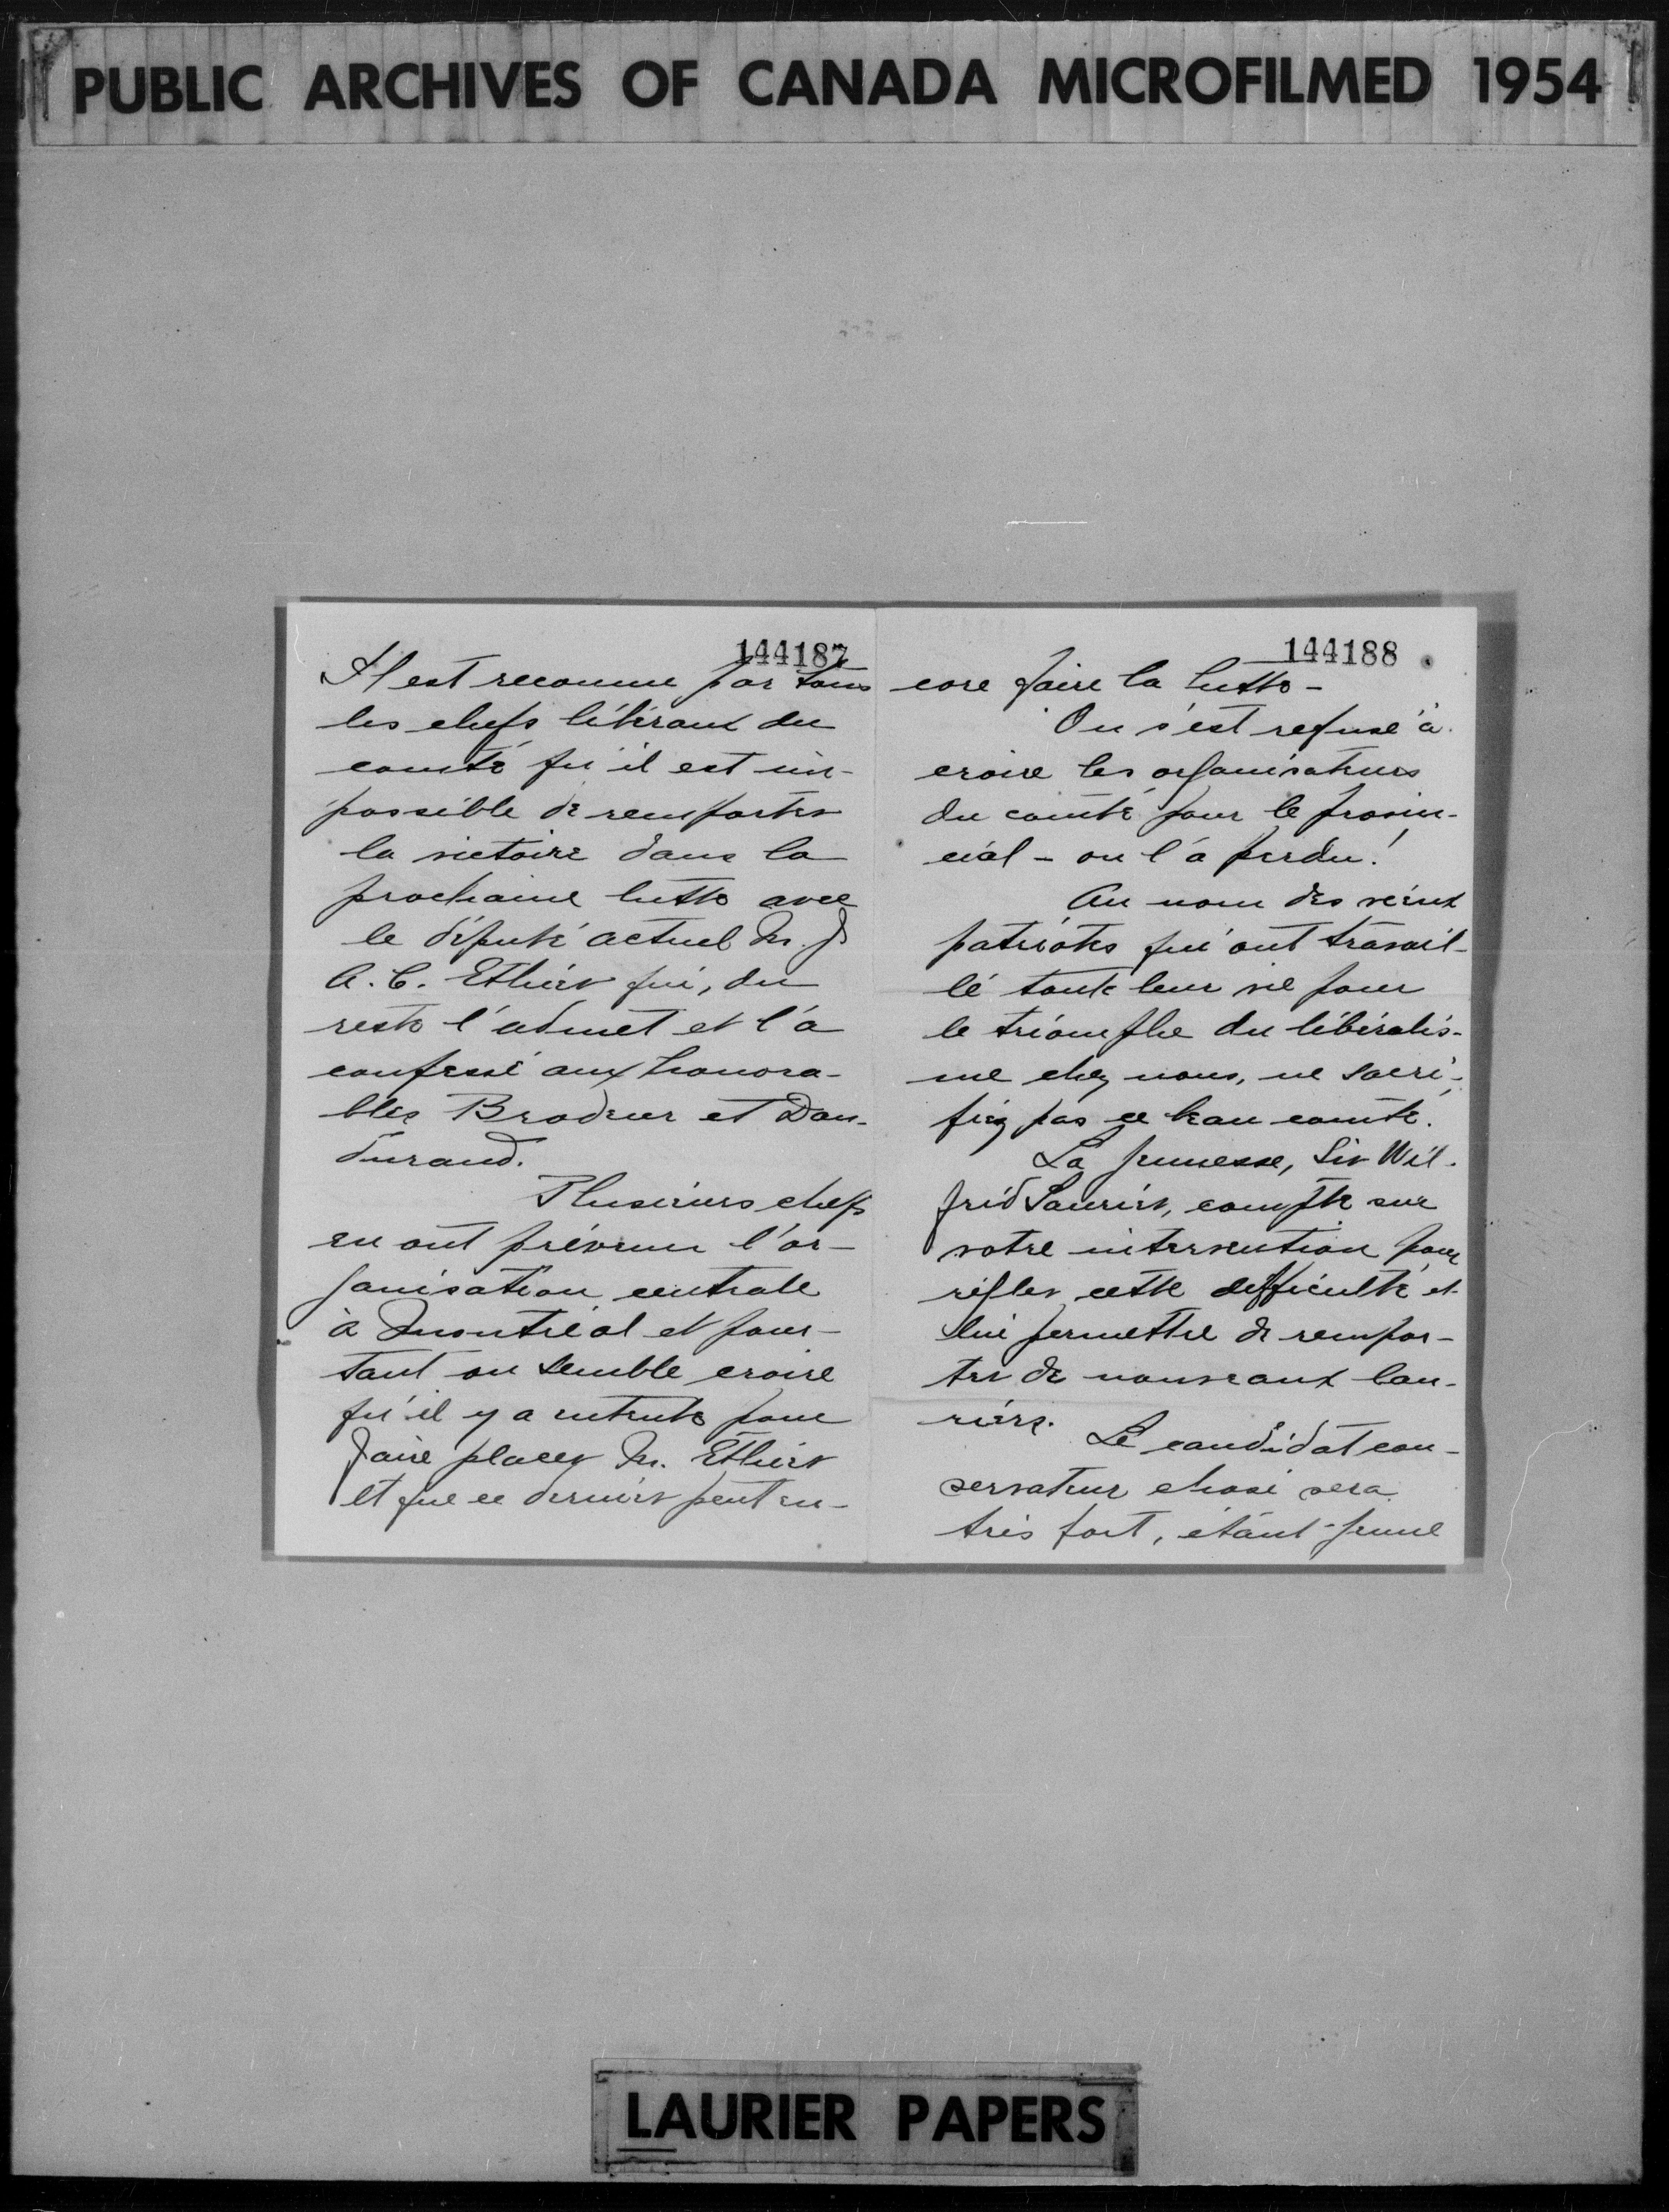 PUBLIC ARCHIVES OF CANADA MICROFILMED 1954
144187
Il est reconnu par tous
les chefs libéraux du
comté qu'il est im-
possible de remporter
la victoire dans la
prochaine lutte avec
le député actuel M. J
A. C. Ethier qui, du
reste l'admet et l'a
confessé aux honora-
bles Brodeur et Dan-
durand.
Plusieurs chefs
en ont prévenu l'or-
ganisation centrale
à Montréal et pour-
tant on semble croire
qu'il y a entente pour
faire placer M. Ethier
et que ce dernier peut en-
144188
core faire la lutte -
On s'est refusé à
croire les organisateurs
du comté pour le provin-
cial - on l'a perdu!
Au nom des vieux
patriotes qui ont travail-
lé toute leur vie pour
le triomphe du libéralis-
me chez nous, ne sacri-
fiez pas ce beau comté.
La jeunesse, Sir Wil-
frid Laurier, compte sur
votre intervention pour
régler cette difficulté et
lui permettre de rempor-
ter de nouveaux lau-
riers.
Le candidat con-
servateur choisi sera
très fort, étant jeune
LAURIER PAPERS